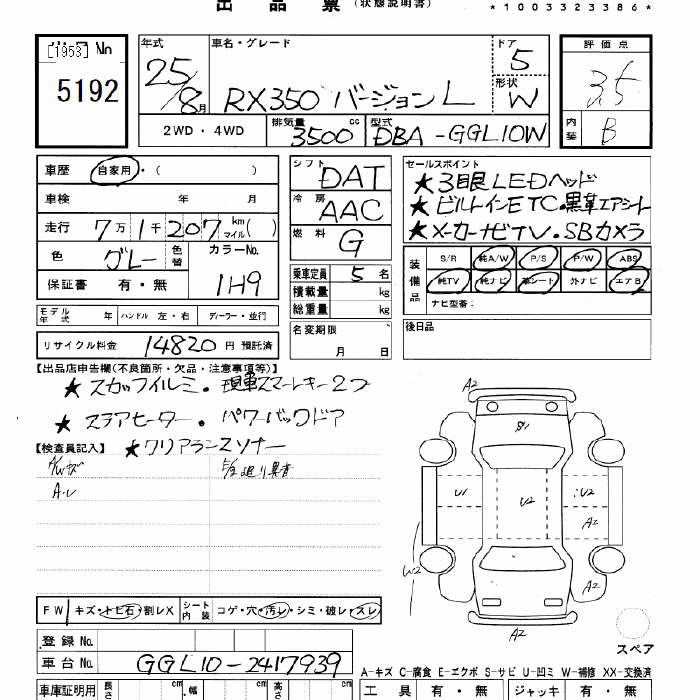 出品票 (状態説明書)
*1003323386*
[1953] No
5192
年式
25/8月
車名・グレード
RX350 バージョンL
ドア
5
形状
W
評価点
3.5
内装
B
2WD・4WD
排気量 3500 cc
型式 DBA-GGL10W
車歴 自家用・( )
車検 年 月
走行 7万1千207km(マイル)( )
色 グレー 色替
カラーNo. 1H9
保証書 有・無
シフト DAT
冷房 AAC
燃料 G
乗車定員 5 名
積載量 kg
総重量 kg
名変期限
月 日
セールスポイント
★3眼LEDヘッド
★ビルトインETC・黒革エアシート
★メーカーナビTV・SBカメラ
装備品
S/R 純A/W P/S P/W ABS
純TV 純ナビ 革シート 外ナビ エアB
ナビ型番:
モデル年式 年 ハンドル 左・右 ディーラー・並行
後日品
リサイクル料金 14820 円 預託済
【出品店申告欄(不良箇所・欠品・注意事項等)】
★スカッフイルミ・現車スマートキー2つ
★ステアヒーター・パワーバックドア
【検査員記入】 ★クリアランスソナー
A/Wキズ
A・U
A2
B1
U1
U2
:U2
A2
W2
A2
A2
スペア
FW キズ・トビ石・割レX
シート内装 コゲ・穴・汚レ・シミ・破レ・スレ
登録No.
車台No. GGL10-2417939
A-キズ C-腐食 E-エクボ S-サビ U-凹ミ W-補修 XX-交換済
車庫証明用 長さ cm 幅 cm 高さ cm
工具 有・無 ジャッキ 有・無